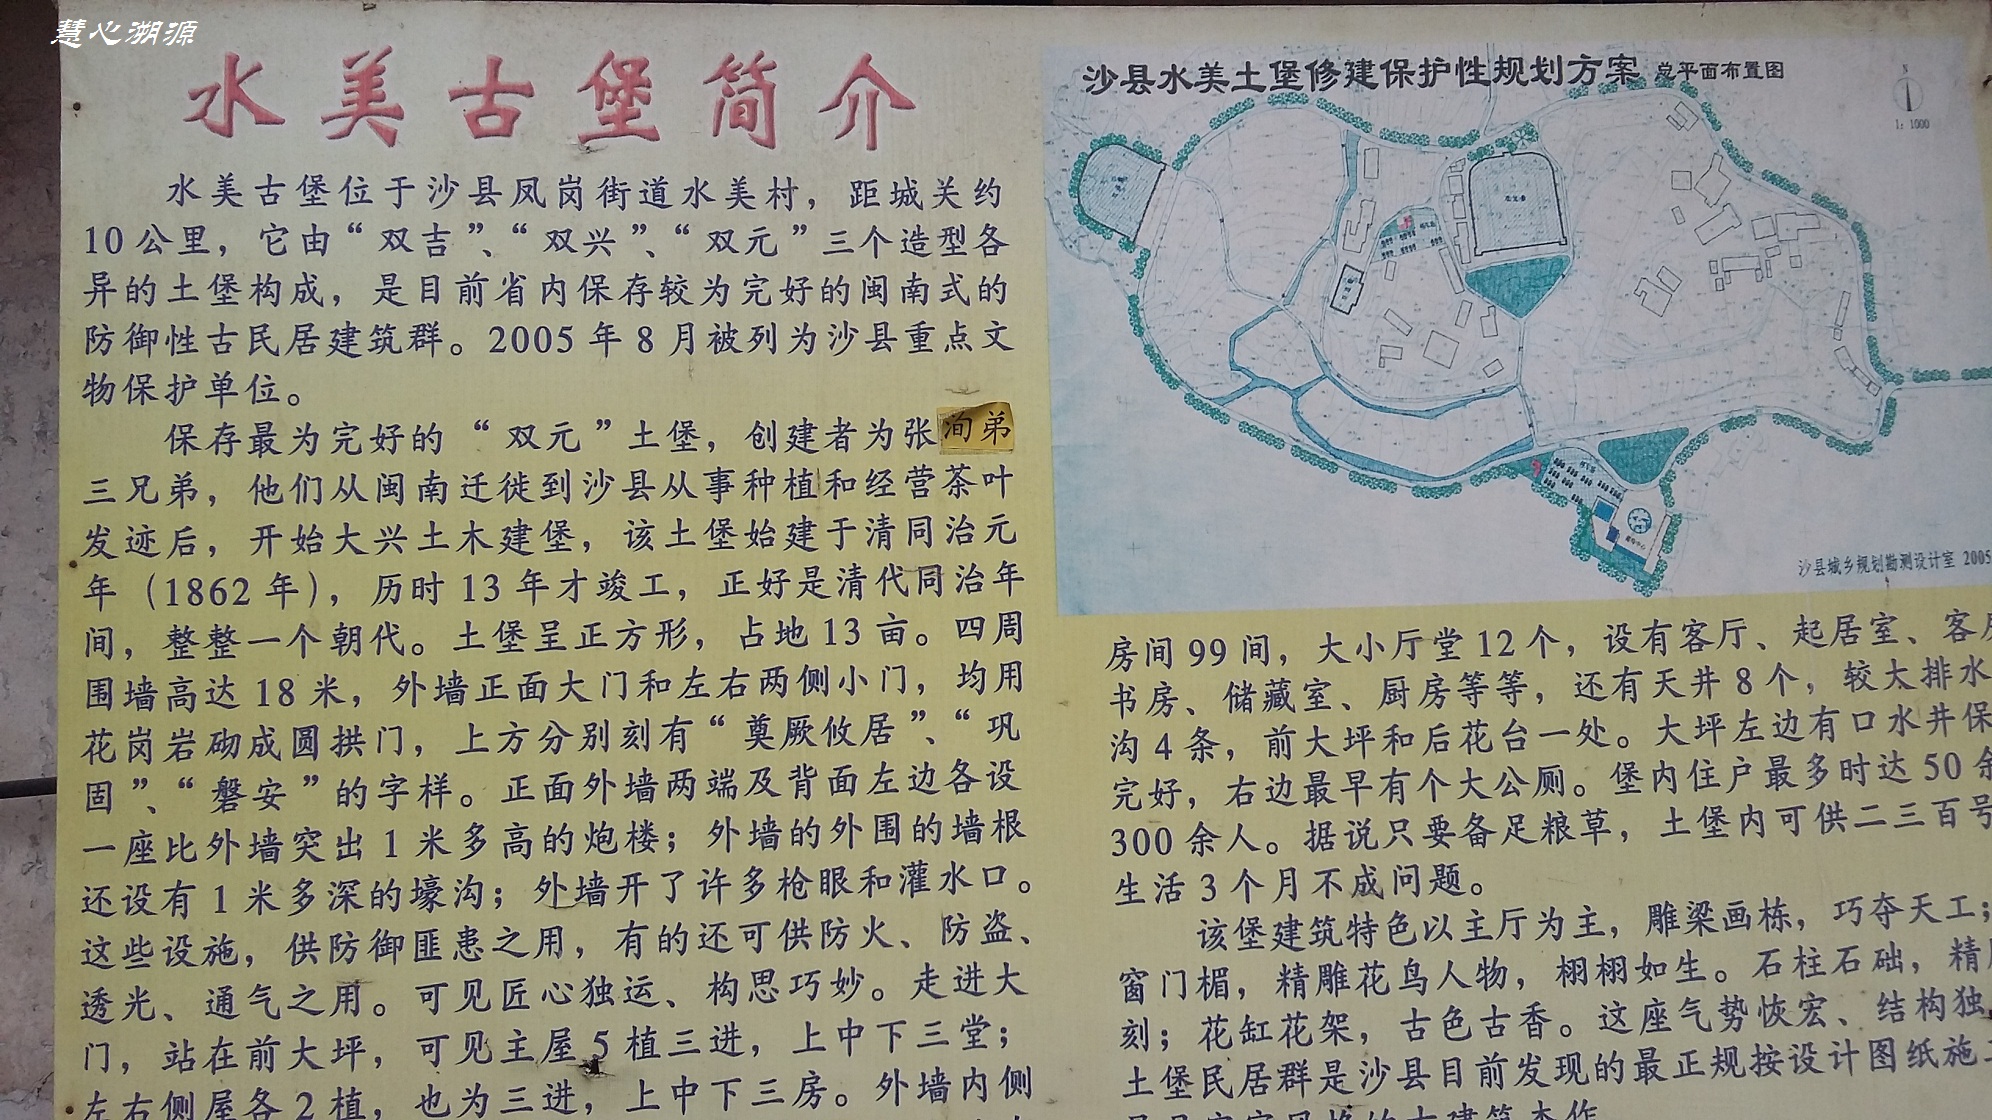 慧心溯源
水美古堡简介
水美古堡位于沙县凤岗街道水美村，距城关约
10公里，它由“双吉”、“双兴”、“双元”三个造型各
异的土堡构成，是目前省内保存较为完好的闽南式的
防御性古民居建筑群。2005年8月被列为沙县重点文
物保护单位。
保存最为完好的“双元”土堡，创建者为张洵弟
三兄弟，他们从闽南迁徙到沙县从事种植和经营茶叶
发迹后，开始大兴土木建堡，该土堡始建于清同治元
年（1862年），历时13年才竣工，正好是清代同治年
间，整整一个朝代。土堡呈正方形，占地13亩。四周
围墙高达18米，外墙正面大门和左右两侧小门，均用
花岗岩砌成圆拱门，上方分别刻有“奠厥攸居”、“巩
固”、“磐安”的字样。正面外墙两端及背面左边各设
一座比外墙突出1米多高的炮楼；外墙的外围的墙根
还设有1米多深的壕沟；外墙开了许多枪眼和灌水口。
这些设施，供防御匪患之用，有的还可供防火、防盗、
透光、通气之用。可见匠心独运、构思巧妙。走进大
门，站在前大坪，可见主屋5植三进，上中下三堂；
左右侧屋各2植，也为三进，上中下三房。外墙内侧
沙县水美土堡修建保护性规划方案 总平面布置图
N
1:1000
沙县城乡规划勘测设计室 2005
房间99间，大小厅堂12个，设有客厅、起居室、客房
书房、储藏室、厨房等等，还有天井8个，较大排水
沟4条，前大坪和后花台一处。大坪左边有口水井保
完好，右边最早有个大公厕。堡内住户最多时达50余
300余人。据说只要备足粮草，土堡内可供二三百号
生活3个月不成问题。
该堡建筑特色以主厅为主，雕梁画栋，巧夺天工；
窗门楣，精雕花鸟人物，栩栩如生。石柱石础，精
刻；花缸花架，古色古香。这座气势恢宏、结构独
土堡民居群是沙县目前发现的最正规按设计图纸施